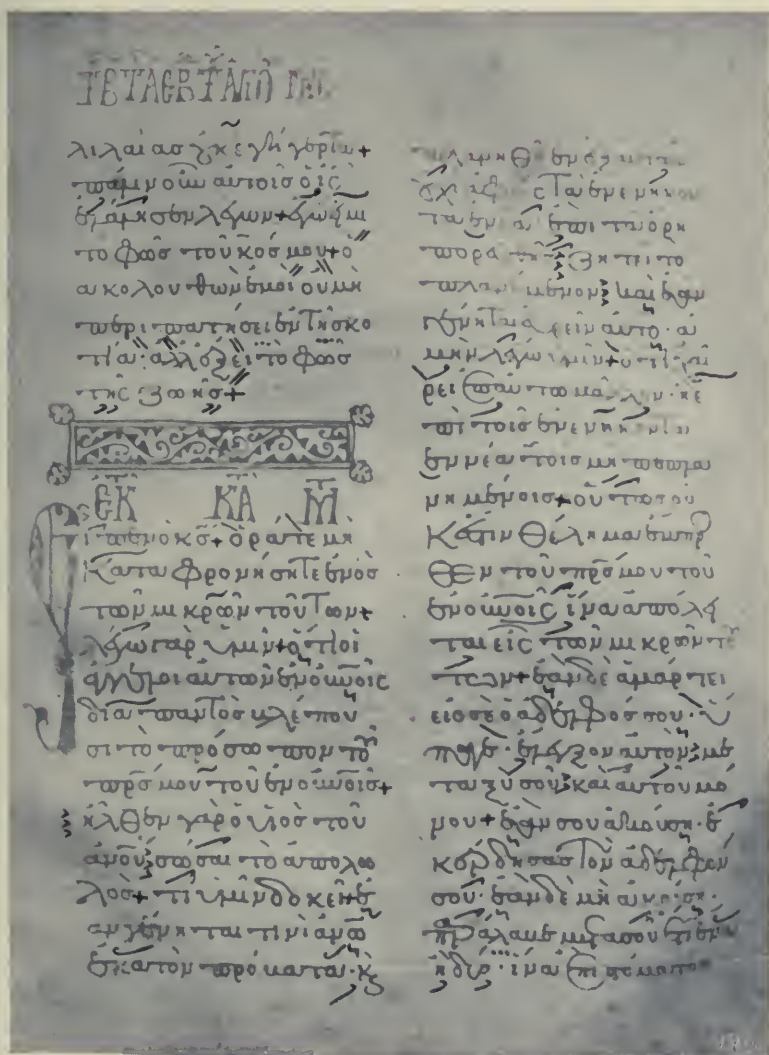 λιλαίας οὐκ ἐγήγερται +
πάλιν οὖν αὐτοῖς ὁ ις
ἐλάλησεν λέγων + ἐγώ εἰμι
τὸ φῶς τοῦ κόσμου + ὁ
ἀκολουθῶν ἐμοὶ οὐ μὴ
περιπατήσει ἐν τῇ σκο
τίᾳ· ἀλλ' ἕξει τὸ φῶς
τῆς ζωῆς +
ΕΚ ΚΑ Μ
Εἶπεν ὁ κς + ὁρᾶτε μὴ
καταφρονήσητε ἑνὸς
τῶν μικρῶν τούτων +
λέγω γὰρ ὑμῖν + ὅτι οἱ
ἄγγελοι αὐτῶν ἐν οὐνοις
διὰ παντὸς βλέπου
σι τὸ πρόσωπον τοῦ
πρς μου τοῦ ἐν οὐνοις +
ἦλθεν γὰρ ὁ υἱὸς τοῦ
ανου σῶσαι τὸ ἀπολω
λός + τί ὑμῖν δοκεῖ ἐ
ὰν γένηται τινὶ ανω
ἑκατὸν πρόβατα· κ
πλανηθῇ ἓν ἐξ αὐτῶν
οὐχὶ ἀφεὶς τὰ ἐνενήκον
τα ἐννέα ἐπὶ τὰ ὄρη
πορευθεὶς ζητεῖ τὸ
πλανώμενον καὶ ἐὰν
γένηται εὑρεῖν αὐτό· ἀ
μὴν λέγω ὑμῖν + ὅτι χαί
ρει ἐπ' αὐτῷ μᾶλλον· ἢ ἐ
πὶ τοῖς ἐνενήκοντα
ἐννέα τοῖς μὴ πεπλα
νημένοις + οὕτως οὐ
κ ἔστιν θέλημα ἔμπρο
σθεν τοῦ πρς μου τοῦ
ἐν οὐνοις ἵνα ἀπόλη
ται εἷς τῶν μικρῶν τού
των + ἐὰν δὲ ἁμάρτει
εἰς σὲ ὁ ἀδελφός σου· ὕ
παγε· ἔλεγξον αὐτὸν με
ταξὺ σοῦ καὶ αὐτοῦ μό
νου + ἐάν σου ἀκούσῃ· ἐ
κέρδησας τὸν ἀδελφόν
σου· ἐὰν δὲ μὴ ἀκούσῃ·
παράλαβε μετὰ σοῦ ἔτι ἕνα
ἢ δύο· ἵνα ἐπὶ στόματος